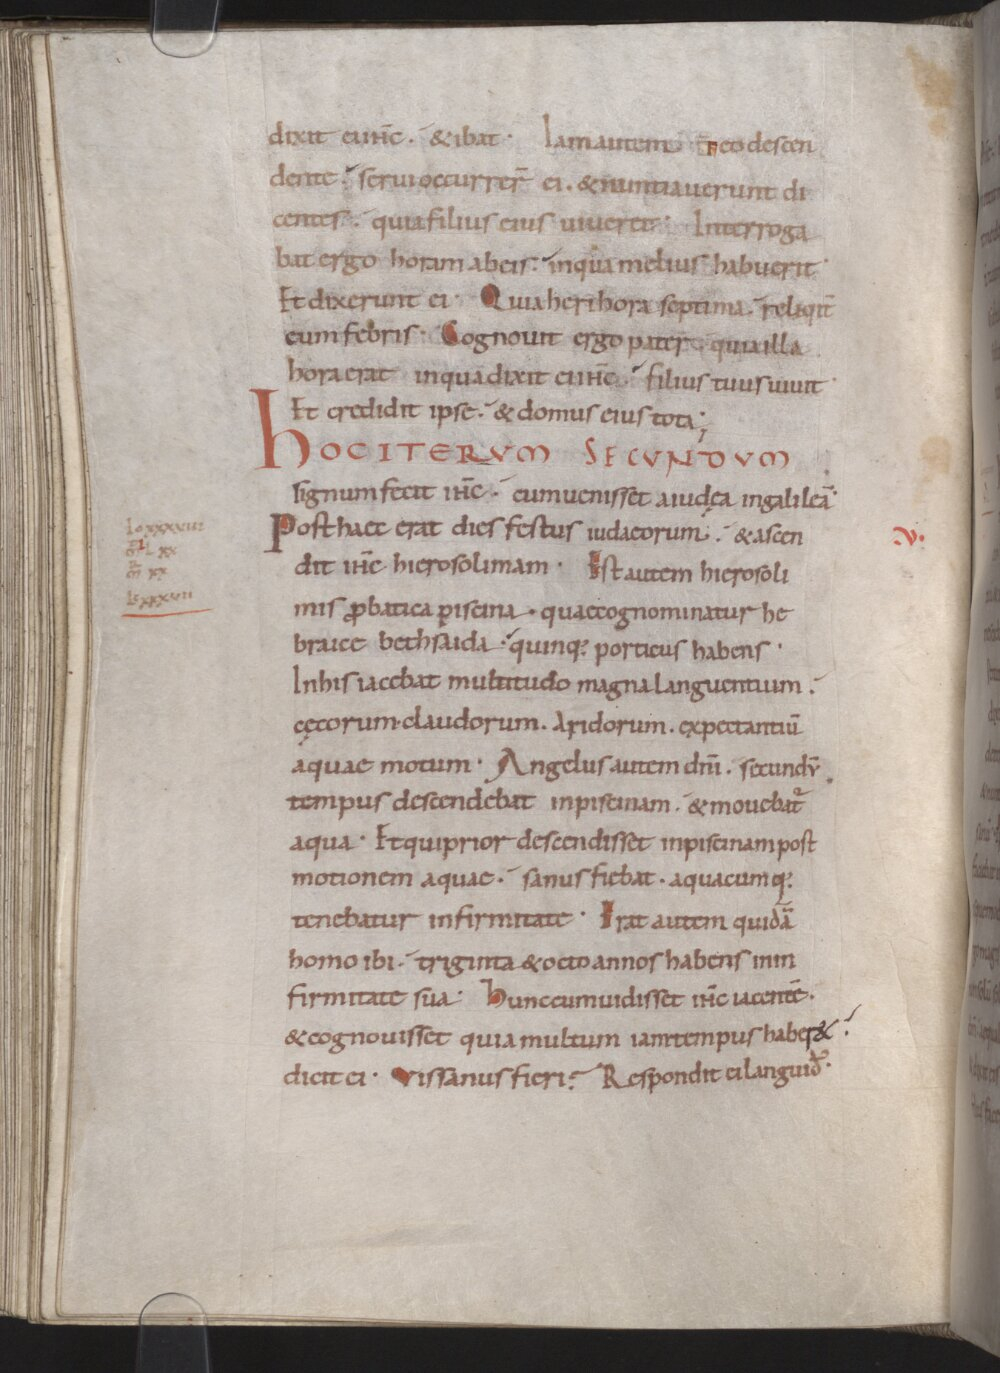 dixit ei ihc̄. & ibat. Iam autem eo descen
dente. serui occurrer̄ ei. & nuntiauerunt di
centes. quia filius eius uiueret. Interroga
bat ergo horam ab eis. in qua melius habuerit.
Et dixerunt ei. Quia heri hora septima. reliqit̄
eum febris. Cognouit ergo pater quia illa
hora erat in qua dixit ei ihc̄. filius tuus uiuit.
Et credidit ipse. & domus eius tota;
HOC ITERUM SECUNDUM
signum fecit ihc̄. cum uenisset a iudęa in galileā.
Post haec erat dies festus iudaeorum. & ascen
dit ihc̄ hierosolimam. Est autem hierosoli
mis ꝓbatica piscina. quae cognominatur he
braice bethsaida. quinq; porticus habens.
In his iacebat multitudo magna languentium.
cęcorum. claudorum. Aridorum. expectantiū
aquae motum. Angelus autem dn̄i. secundū
tempus descendebat in piscinam. & mouebat᷑
aqua. Et qui prior descendisset in piscinam post
motionem aquae. sanus fiebat. a quacumq;
tenebatur infirmitate. Erat autem quidā
homo ibi. triginta & octo annos habens in in
firmitate sua. Hunc cum uidisset ihc̄ iacentē.
& cognouisset quia multum iam tempus haber&.
dicit ei. Vis sanus fieri? Respondit ei languid᷑.
v.